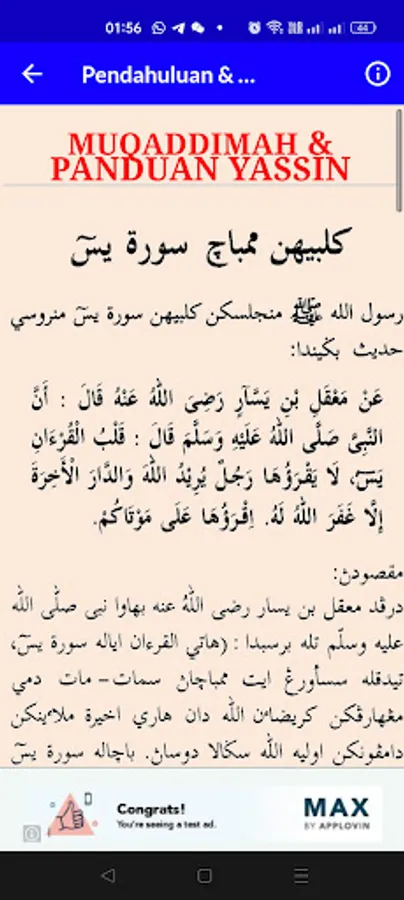 01:56
44
Pendahuluan & ...
MUQADDIMAH &
PANDUAN YASSIN
كلبيهن ممباچ سورة يسٓ
رسول الله ﷺ منجلسكن كلبيهن سورة يسٓ منروسي
حديث بڬيندا:
عَنْ مَعْقَلِ بْنِ يَسَّآرٍ رَضِىَ اللهُ عَنْهُ قَالَ : أَنَّ
النَّبِىَّ صَلَّى اللهُ عَلَيْهِ وَسَلَّمَ قَالَ : قَلْبُ الْقُرْءَانِ
يَسٓ، لَا يَقْرَؤُهَا رَجُلٌ يُرِيْدُ اللهَ وَالدَّارَ الْأَخِرَةَ
إِلَّا غَفَرَ اللهُ لَهُ. اِقْرَؤُهَا عَلَى مَوْتَاكُمْ.
مقصودڽ:
درڤد معقل بن يسار رضى اللهُ عنه بهاوا نبى صلّى الله
عليه وسلّم تله برسبدا : (هاتي القرءان اياله سورة يسٓ،
تيدقله سسأورڠ ايت ممباچاڽ سمات- مات دمي
مڠهارڤكن كريضاءن الله دان هاري اخيرة ملاءينكن
دامڤونكن اوليه الله سڬالا دوساڽ. باچاله سورة يسٓ
Congrats!
You're seeing a test ad.
MAX
BY APPLOVIN